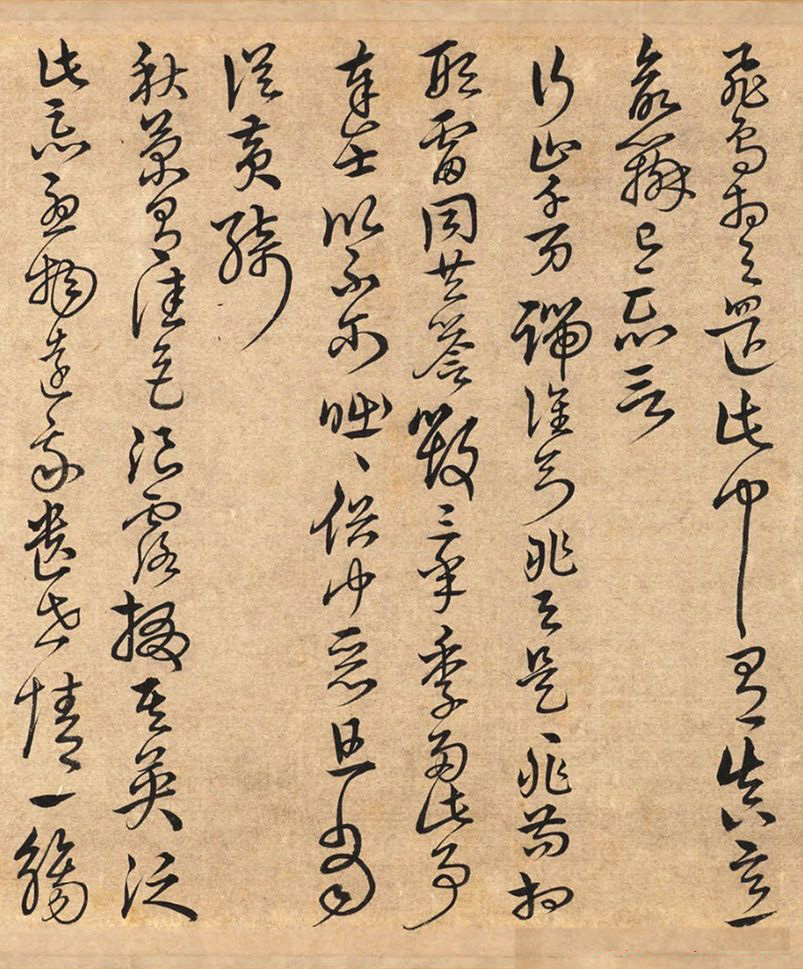 飛鳥相與還此中有真意
欲辯已忘言
行止千万端誰知非與是〻非苟相
形雷同共譽毀三年季多此事
達士似不尔咄〻俗中惡且當
從黃綺
秋菊有佳色浥露掇其英泛
此忘憂物遠我遺世情一觴